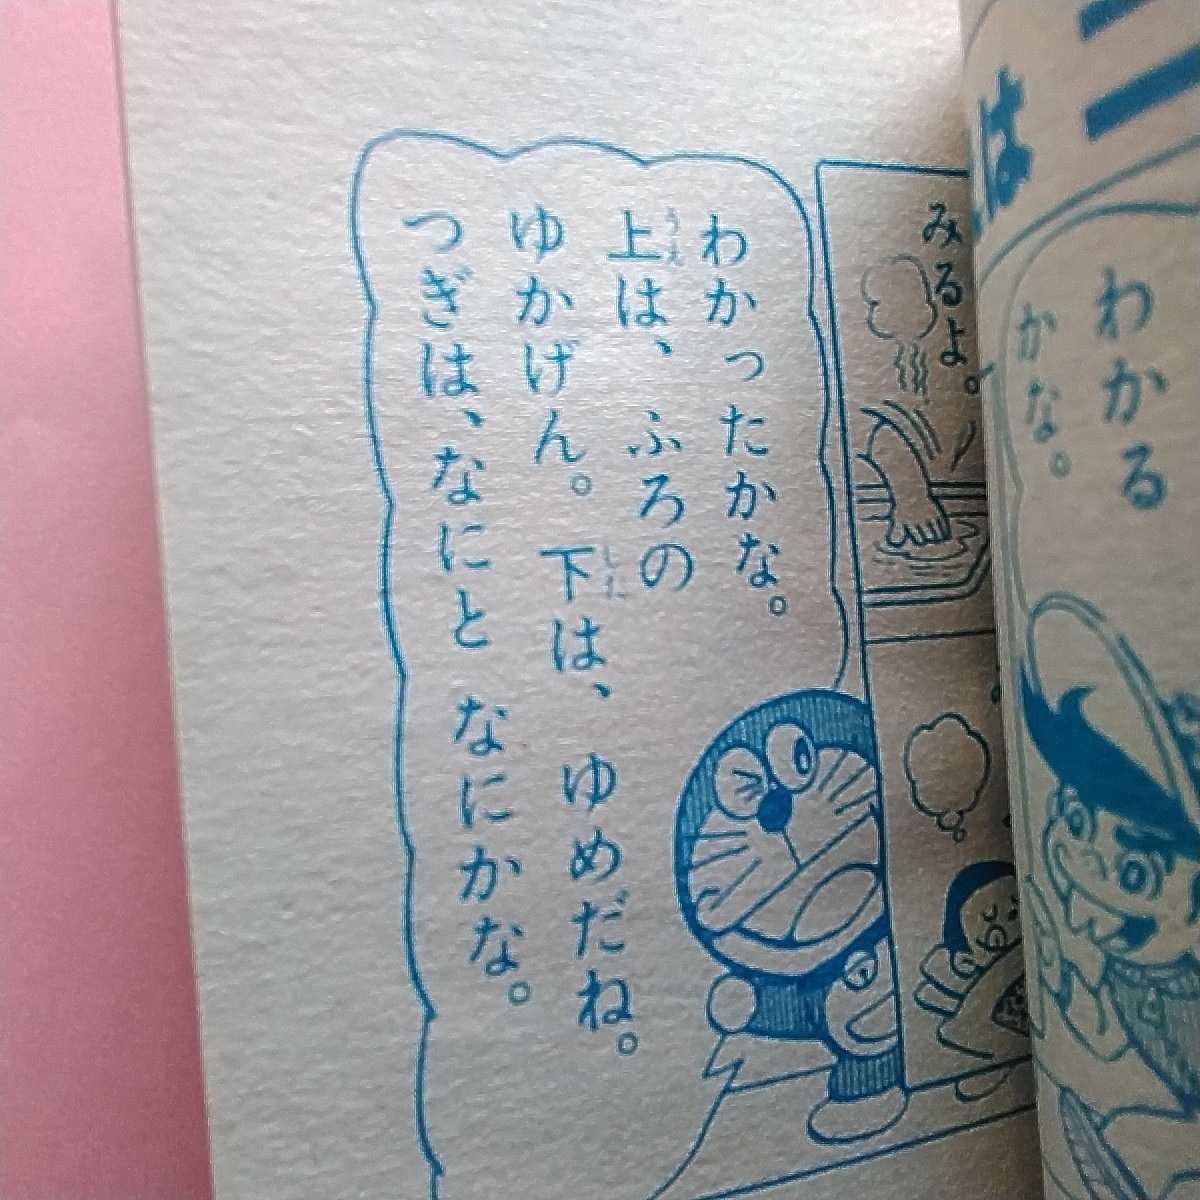 わかる
かな。
みるよ。
わかったかな。
上は、ふろの
ゆかげん。下は、ゆめだね。
つぎは、なにと なにかな。